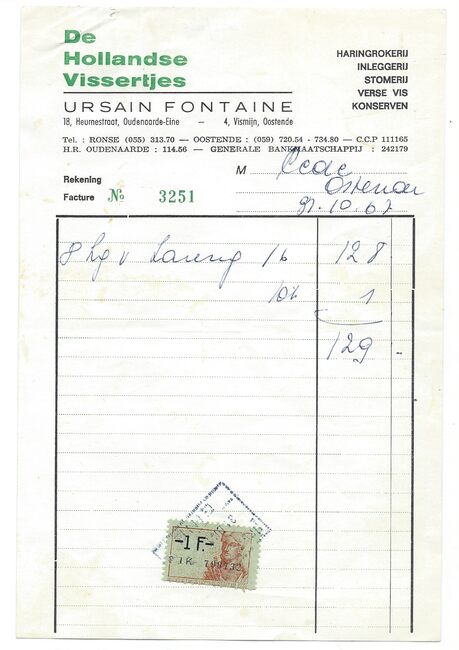 De
Hollandse
Vissertjes
URSAIN FONTAINE
18, Heurnestraat, Oudenaarde-Eine — 4, Vismijn, Oostende
HARINGROKERIJ
INLEGGERIJ
STOMERIJ
VERSE VIS
KONSERVEN
Tel. : RONSE (055) 313.70 — OOSTENDE : (059) 720.54 - 734.80 — C.C.P 111165
H.R. OUDENAARDE : 114.56 — GENERALE BANKMAATSCHAPPIJ : 242179
Rekening
Facture № 3251
M
10.67
8 kg 16 128
1
129 -
-1 F.-